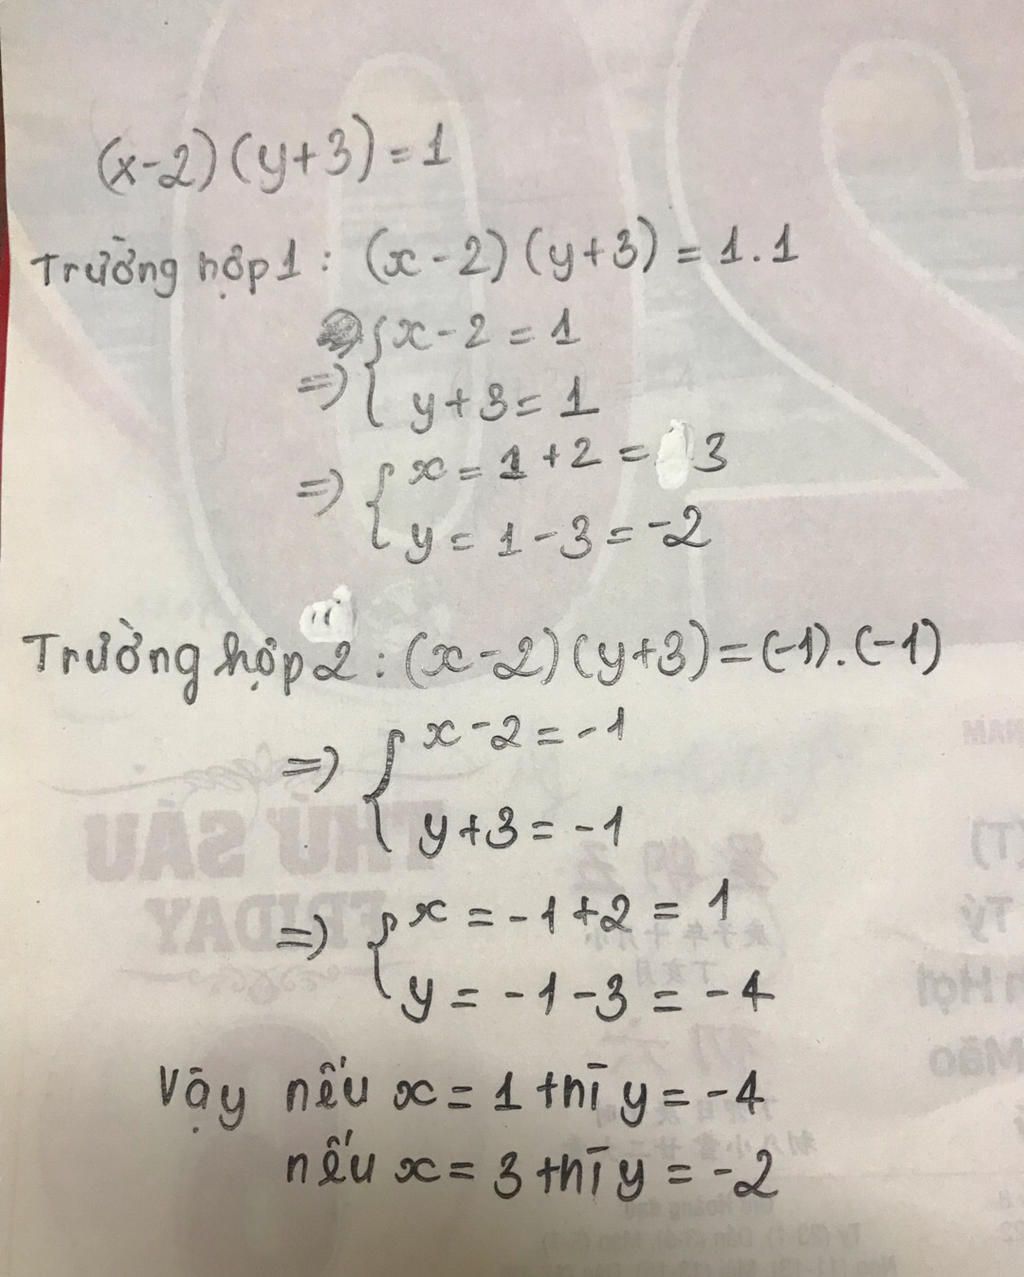 (x-2)(y+3)=1
Trường hợp 1 : (x-2)(y+3) = 1.1
=> { x-2 = 1
y+3 = 1
=> { x = 1+2 = 3
y = 1-3 = -2
Trường hợp 2 : (x-2)(y+3) = (-1).(-1)
=> { x-2 = -1
y+3 = -1
=> { x = -1+2 = 1
y = -1-3 = -4
Vậy nếu x = 1 thì y = -4
nếu x = 3 thì y = -2
THỨ SÁU
FRIDAY
NAM
(T)
Tý
Hợi
Mão